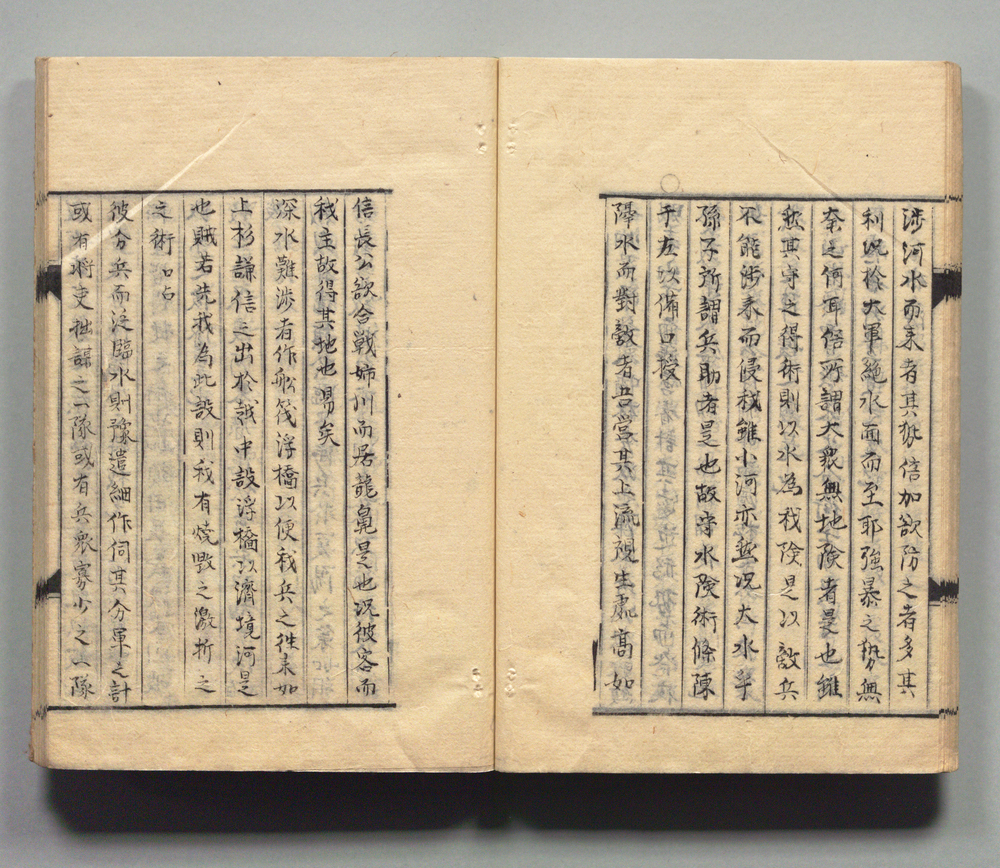 涉河水而来者其勢倍加欲防之者多其
利况於大軍絶水面而至耶強暴之勢無
奈之何耳倍所謂大衆無地険者是也雖
然其守之得術則以水為我険是以敵兵
不能涉来而侵我雖小河亦然况大水乎
孫子所謂兵助者是也故守水険術條陳
于左次備口授
障水而對敵者占営其上流視生處高如
信長公欲合戦姉川而居龍鼻是也况彼客而
我主故得其地也易矣
深水難涉者作舩筏浮橋以便我兵之往来如
上杉謙信之出於越中設浮橋以濟境河是
也賊若先我為此設則我有焼毀之激折之
之術口占
彼分兵而泛臨水則豫遣細作伺其分軍之計
或有将吏拙謀之一隊或有兵衆寡少之一隊